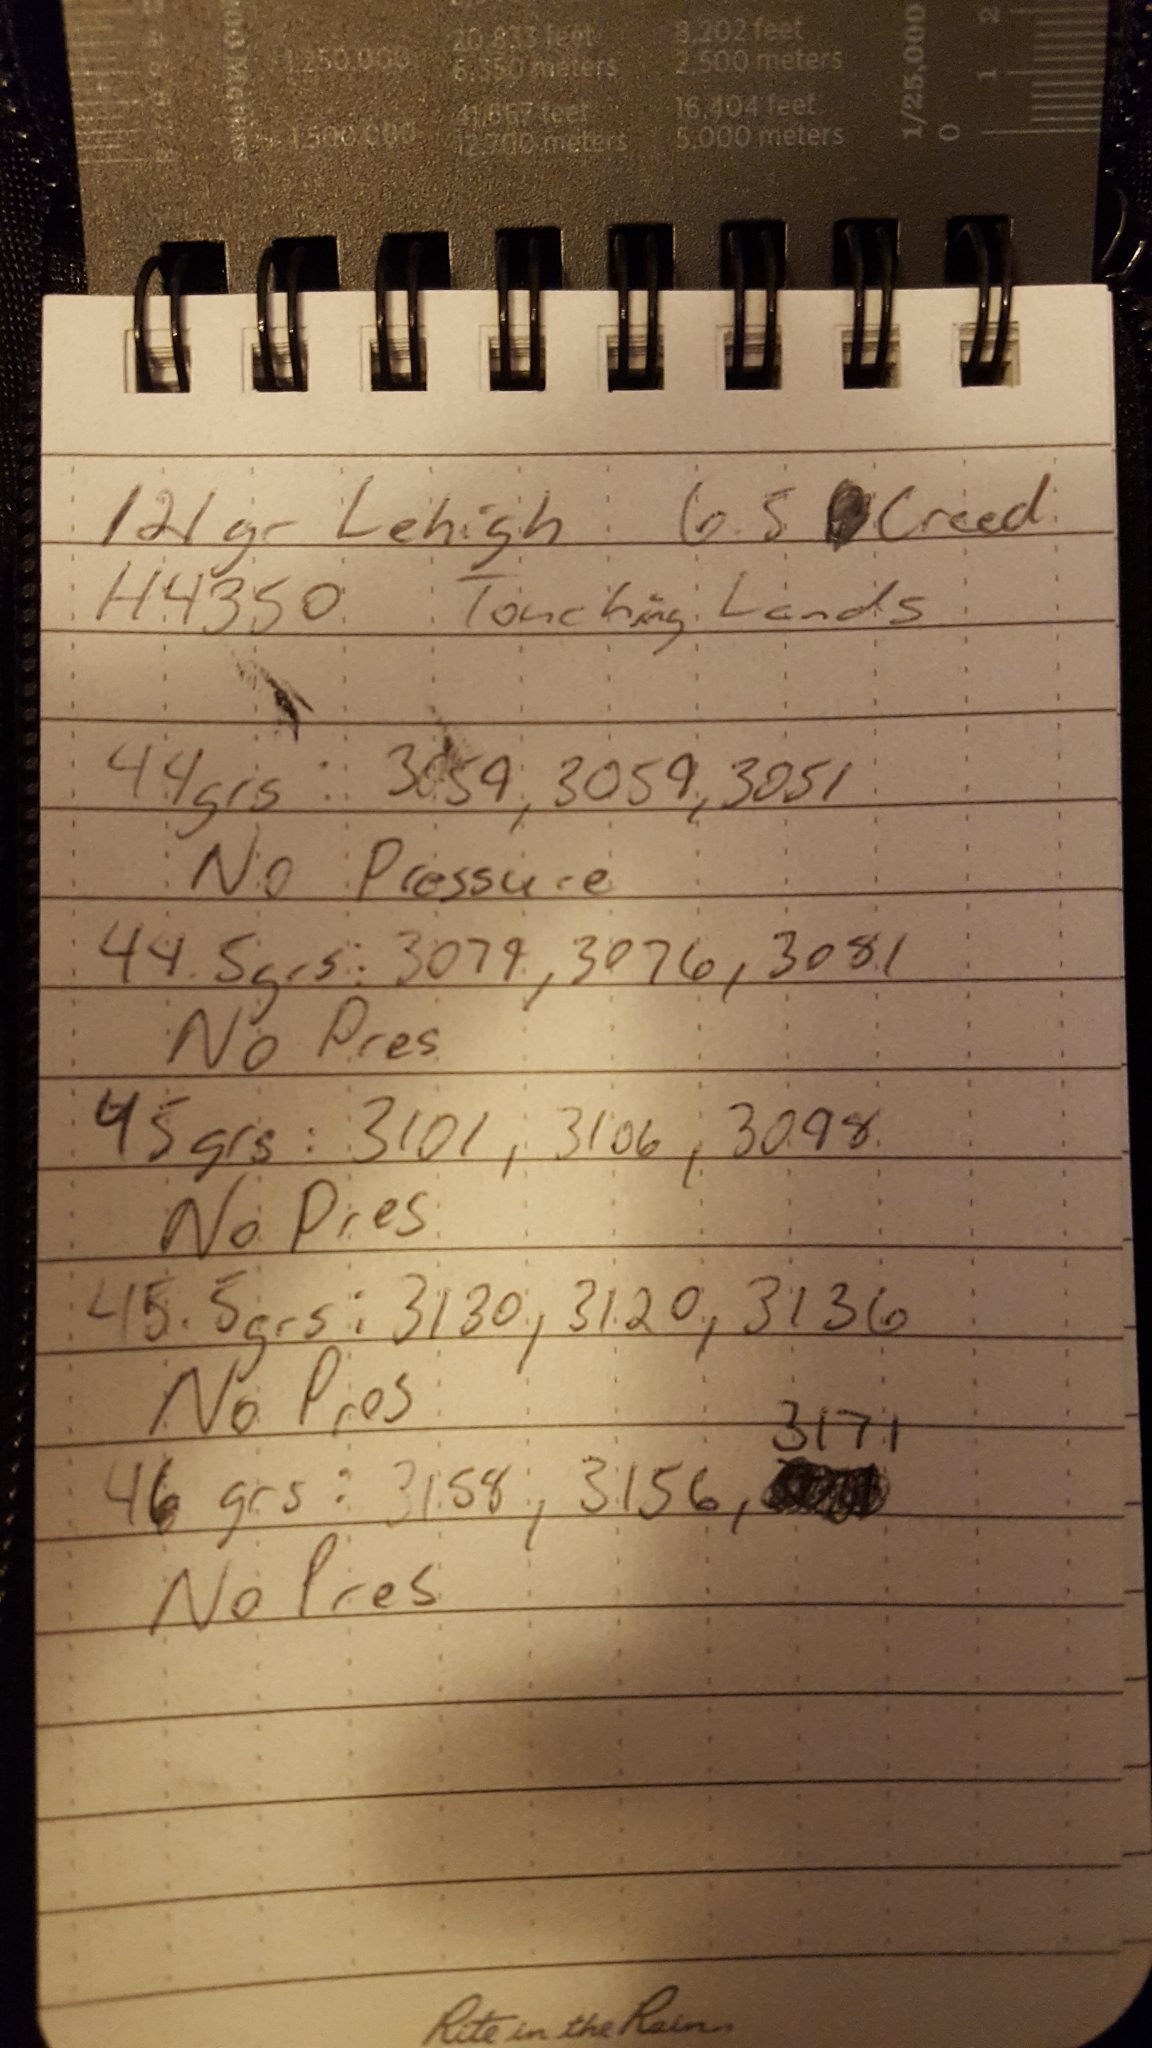 1:250,000 20,833 feet 8,202 feet
6,350 meters 2,500 meters
41,667 feet 16,404 feet
1:500,000 12,700 meters 5,000 meters
1/25,000
0 1 2
121gr Lehigh 6.5 Creed
H4350 Touching Lands
44grs: 3059, 3059, 3051
No Pressure
44.5grs: 3079, 3076, 3081
No Pres
45grs: 3101, 3106, 3098
No Pres
45.5grs: 3130, 3120, 3136
No Pres
3171
46 grs: 3158, 3156,
No Pres
Rite in the Rain